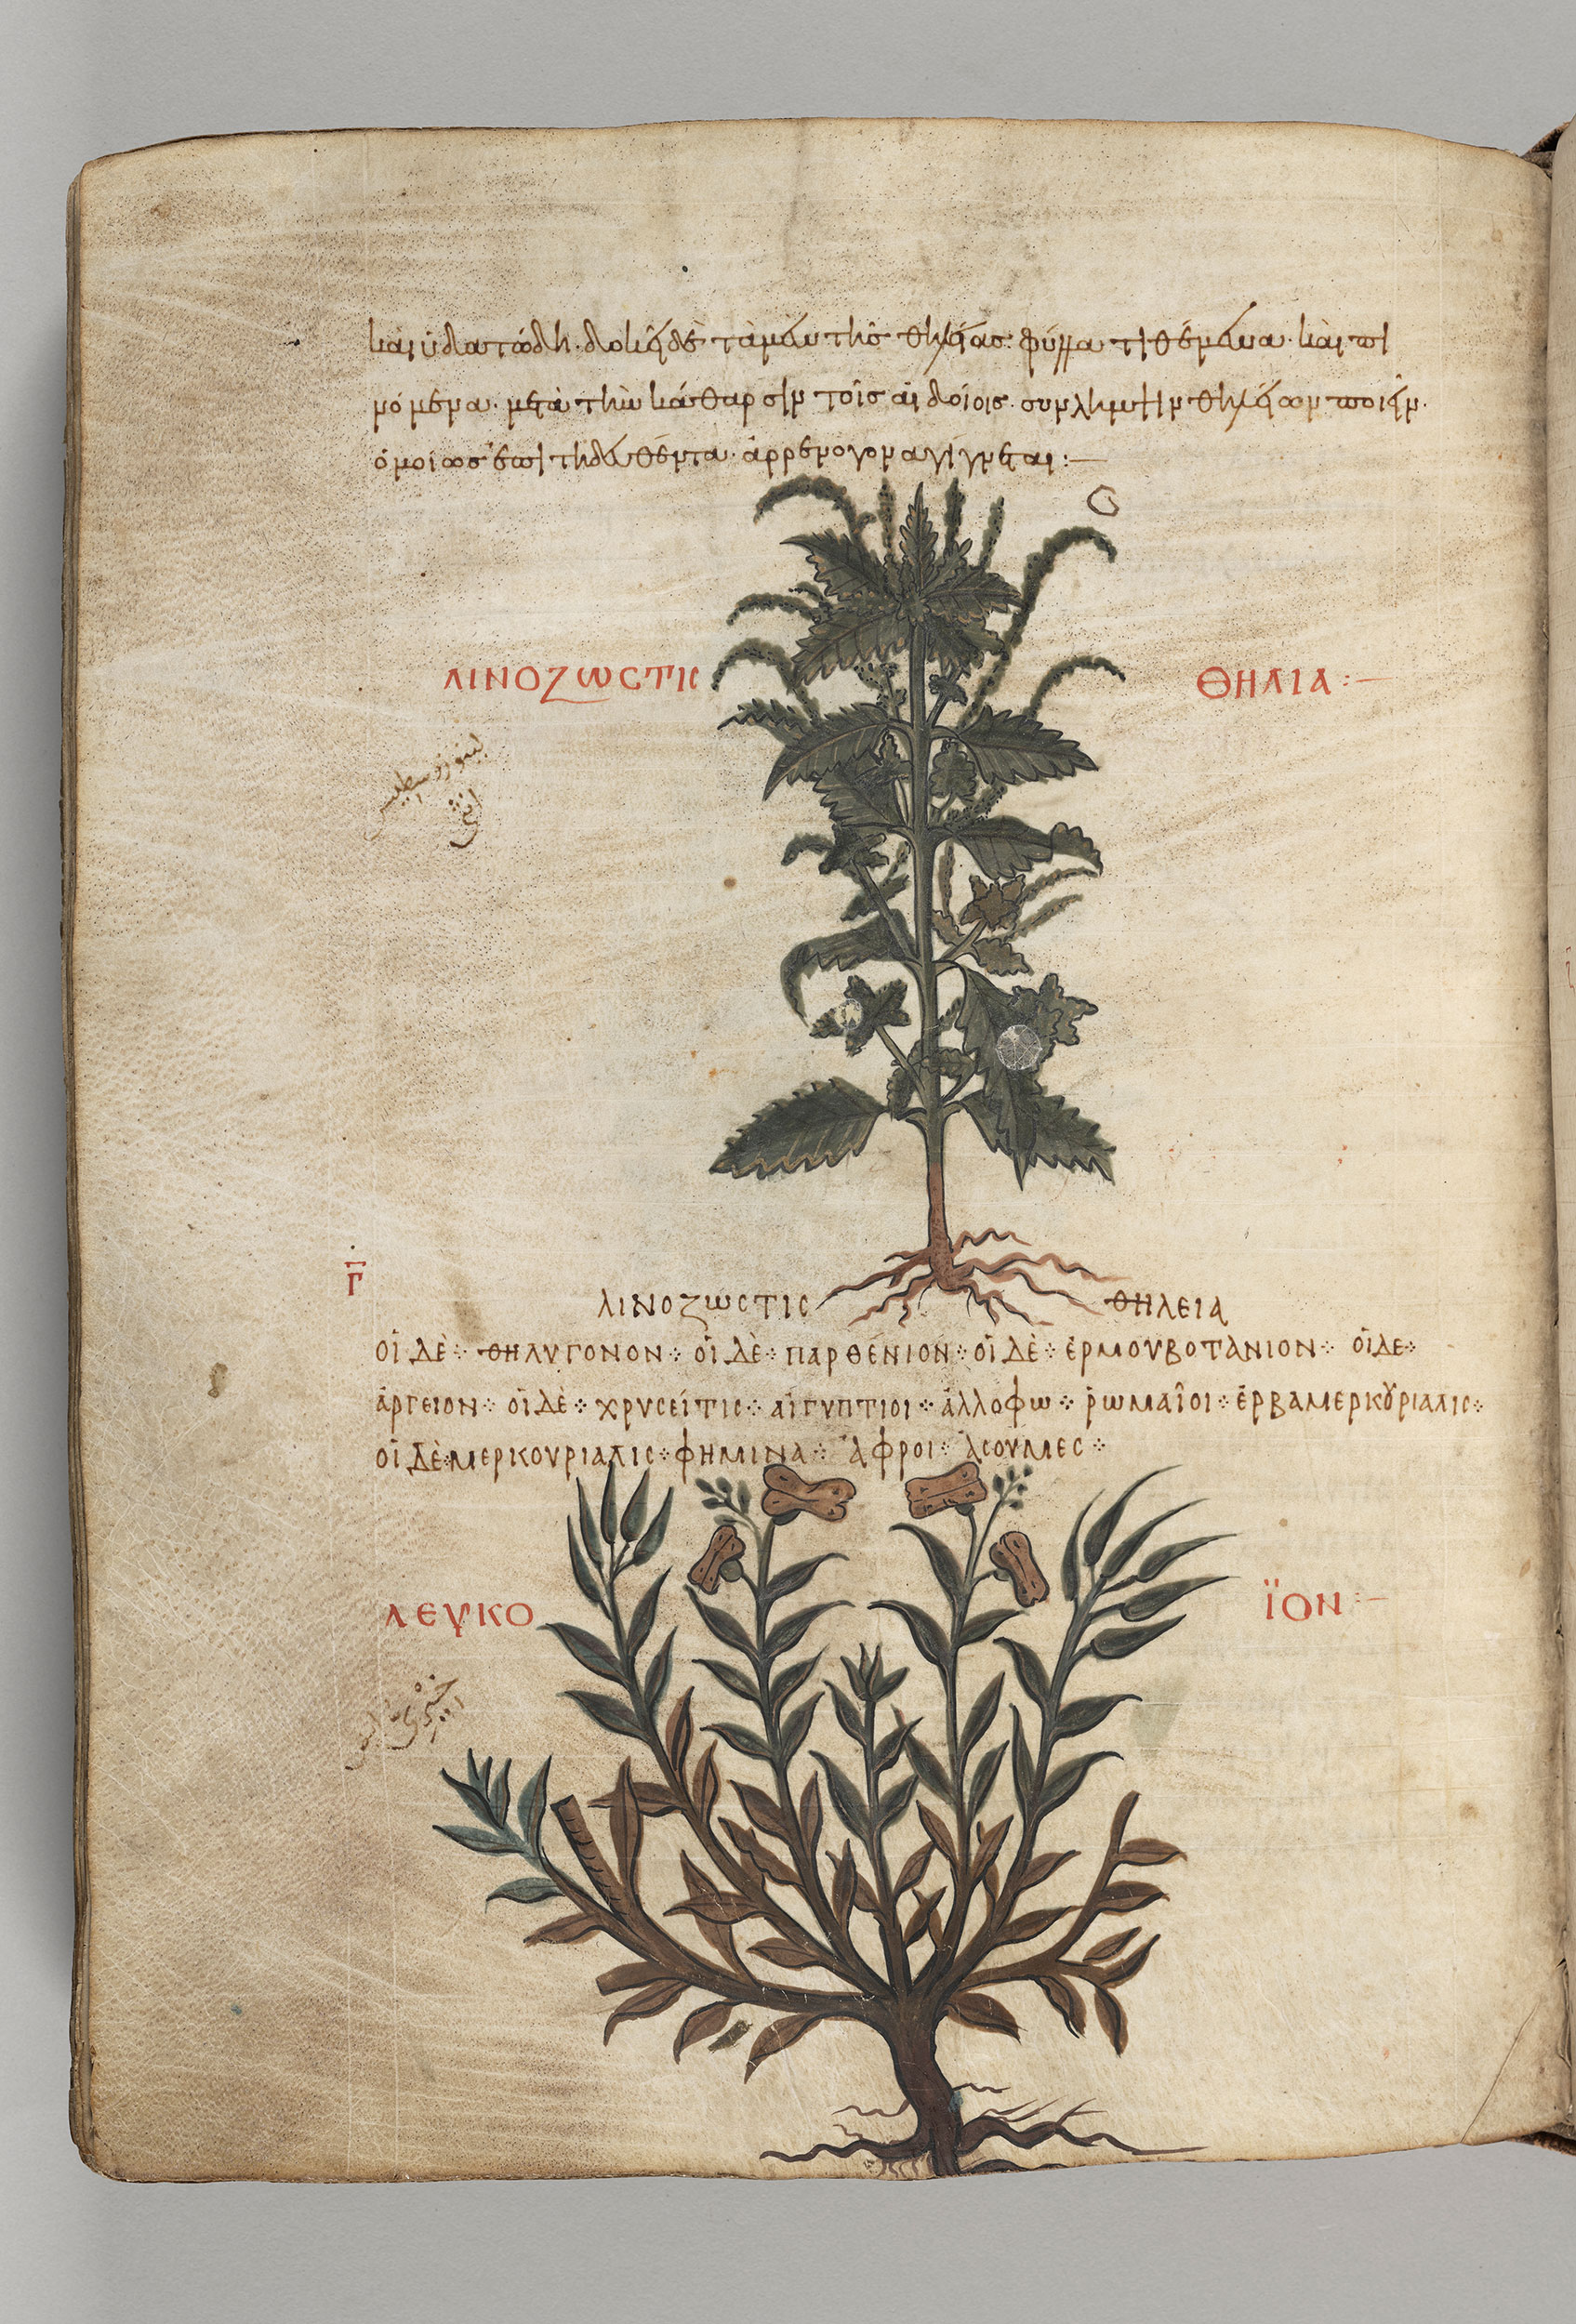 καὶ ὑδατώδη· δοκεῖ δὲ τὰ μὲν τῆς θηλείας φύλλα τιθέμενα· καὶ πι
νόμενα· μετὰ τὴν κάθαρσιν τοῖς αἰδοίοις· συλλημψιν θηλείων ποιεῖν·
ὁμοίως ἐπιτηδευθέντα· ἀρρενογονα γίγνεται:—
ΛΙΝΟΖωϹΤΙϹ ΘΗΛΙΑ:—
لينوزوسطيس
انثى
Γ
ΛΙΝΟΖωϹΤΙϹ ΘΗΛΕΙΑ
ΟἱΔὲ ΘΗΛΥΓΟΝΟΝ ΟἱΔὲ ΠΑΡΘέΝΙΟΝ ΟἱΔὲ ἑΡΜΟΥΒΟΤΑΝΙΟΝ ΟἱΔΕ
ἀΡΓΕΙΟΝ ΟἱΔὲ ΧΡΥϹΕίΤΙϹ ΑἰΓΥΠΤΙΟΙ ἀΛΛΟΦω ῥωΜΑῖΟΙ ἑΡΒΑΜΕΡΚΟΥΡΙΑΛΙϹ
ΟἱΔὲ ΜΕΡΚΟΥΡΙΑΛΙϹ ΦΗΜΙΝΑ ἀΦΡΟΙ ἀϹΟΥΜΕϹ
ΛΕΥΚΟ ΪΟΝ:—